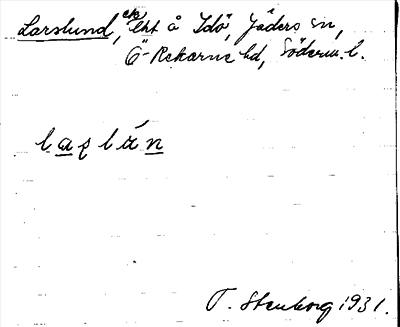 Larslund, ek. lht å Idö, Jäders sn,
Ö-Rekarne hd, Söderm. l.
T. Stenborg 1931.